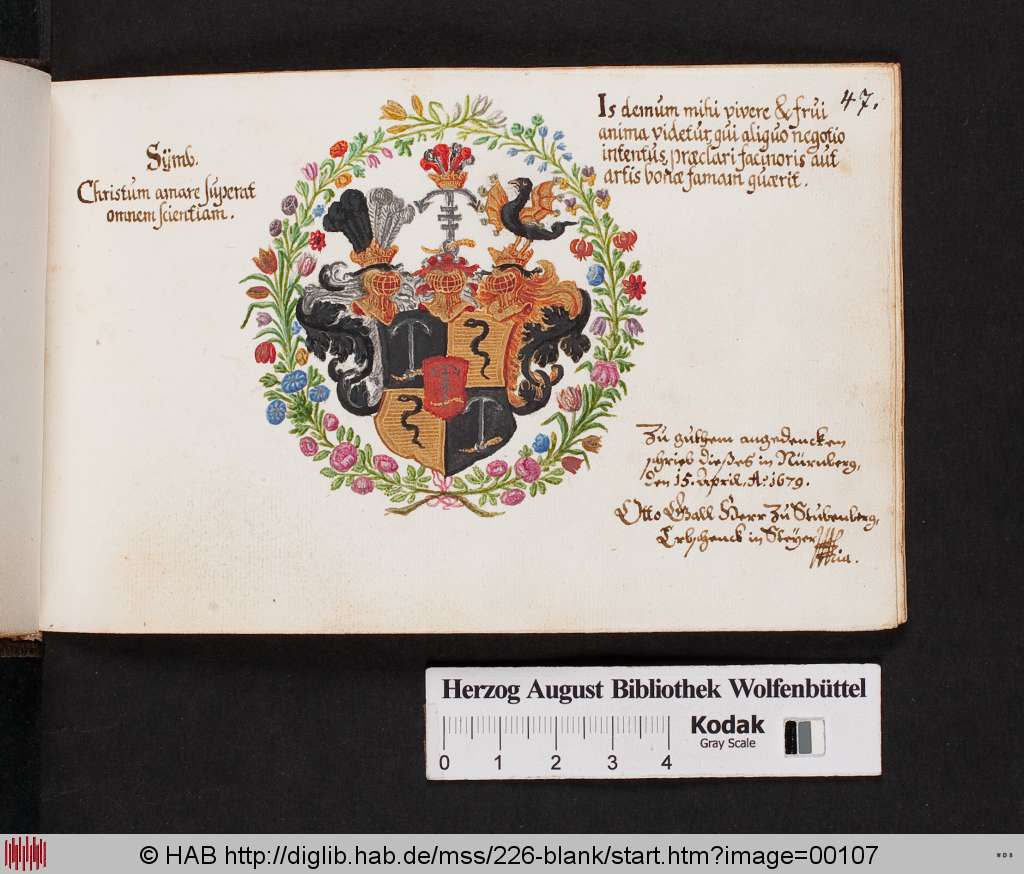 47.
Sÿmb.
Christum amare superat
omnem scientiam.
Is demum mihi vivere & frui
anima videtur, qui aliquo negotio
intentus, præclari facinoris aut
artis bonæ famam quærit.
Zu guthem angedencken
schrieb dießes in Nürnberg,
den 15. april, Ao 1679.
Otto Gall Herr Zu Stubenberg,
Erbschenck in Steyer
mia.
Herzog August Bibliothek Wolfenbüttel
0 1 2 3 4
Kodak
Gray Scale
© HAB http://diglib.hab.de/mss/226-blank/start.htm?image=00107
WDB